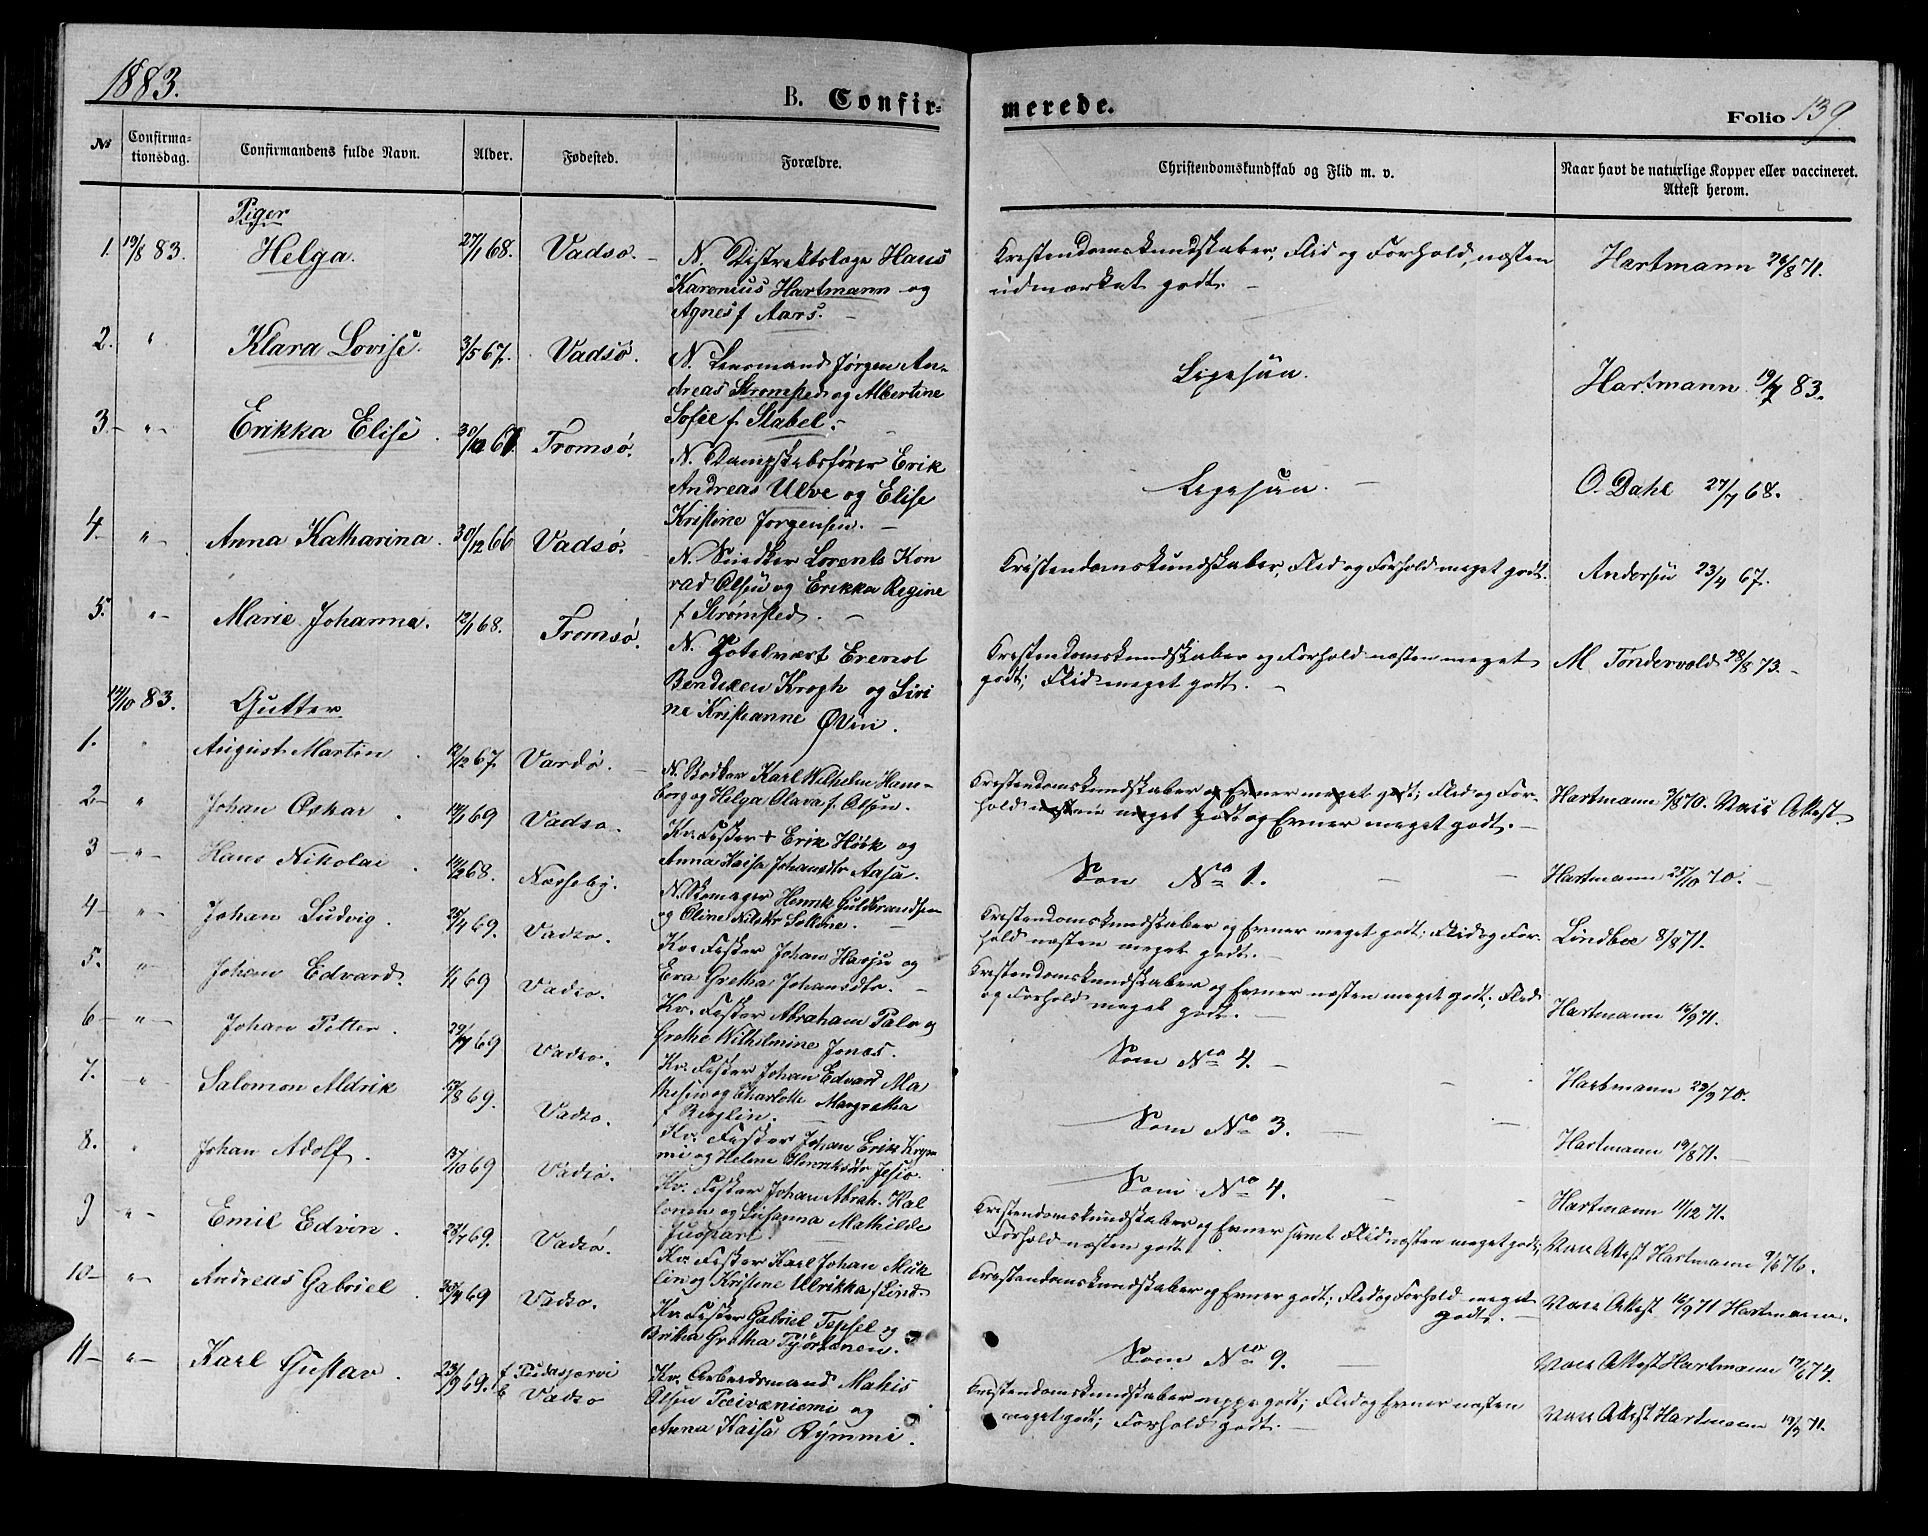 1883.
B. Confir-
merede.
Folio 139.
No
Confirma-
tionsdag.
Confirmandens fulde Navn.
Alder.
Fødested.
Forældre.
Christendomskundskab og Flid m. v.
Naar havt de naturlige Kopper eller vaccineret.
Attest herom.
Piger
1. 19/8 83. Helga. 27/1 68. Vadsø. N. Distriktslæge Hans
Karenius Hartmann og
Agnes f. Aars.
Kristendomskundskaber, Flid og Forhold, næsten
udmærket godt.
Hartmann 26/8 71.
2. " Klara Lovise. 3/5 67. Vadsø. N. Lensmand Jørgen An-
dreas Strømsted og Albertine
Sofie f. Stabel.
Ligesaa.
Hartmann 19/7 83.
3. " Erikka Elise. 30/12 67. Tromsø. N. Dampskibsfører Erik
Andreas Ulve og Elise
Kristine Jørgensen.
Ligesaa.
O. Dahl 27/7 68.
4 " Anna Katharina. 30/12 66 Vadsø. N. Snedker Lorents Kon
rad Olsen og Erikka Regine
f. Strømsted.
Kristendomskundskaber, Flid og Forhold meget godt.
Andersen 23/4 67.
5. " Marie Johanne. 12/1 68. Tromsø. N. Hotelvært Erend
Bendixen Krogh og Sivi
ne Kristianne Øvin.
Kristendomskundskaber og Forhold næsten meget
godt; Flid meget godt.
M Tøndervold 28/8 73.
14/10 83. Gutter
1. " August Martin. 12/12 67. Vardø. N. Bødker Karl Wilhelm Ham-
borg og Helga Olava f. Olsen.
Kristendomskundskaber og Evner meget godt; Flid og For-
hold næsten meget godt og Evner meget godt.
Hartmann 9/8 70. Vacc Attest.
2 " Johan Oskar. 14/1 69 Vadsø. Kv. Fisker + Erik Høik og
Anna Kaisa Johansdtr Aasa.
Som No 1.
Hartmann 25/10 70.
3 " Hans Nikolai. 14/2 68. Næsseby. N. Skomager Henrik Guldbrandsen
og Oline Nilsdtr
Kristendomskundskaber og Evner meget godt; Flid og For-
hold næsten meget godt.
8/8 71.
4 " Johan Ludvig. 25/4 69. Vadsø. Kv. Fisker Johan Harju og
Eva Gretha Johansdtr.
Kristendomskundskaber og Evner næsten meget godt. Flid
og Forhold meget godt.
Hartmann 16/9 71.
5. " Johan Edvard. 1/1 69 Vadsø. Kv. Fisker Abraham Palo og
Grethe Wilhelmine Jonas.
Som No 4.
Hartmann 29/9 70.
6 " Johan Petter. 29/7 69 Vadsø. Kv. Fisker Johan Edvard Ma
thisen og Charlotte Margretha
f Berglin.
Som No 3.
Hartmann 19/8 71.
7. " Salomon Aldrik 17/8 69. Vadsø. Kv. Fisker Johan Erik
og Helene Henriksdtr
Som No 4.
Hartmann 11/12 71.
8. " Johan Adolf. 31/10 69 Vadsø. Kv. Fisker Johan Abrah. Kal
lonen og Susanna Mathilde
Juopari
Kristendomskundskaber og Evner samt Flid næsten meget godt;
Forhold næsten godt.
Vacc Attest Hartmann 9/6 76.
9 " Emil Edvin. 22/7 69. Vadsø. Kv. Fisker Karl Johan Muk
lin og Kristine Ulrikka f Lind
Kristendomskundskaber og Evner godt; Flid og Forhold meget
godt.
Vacc Attest 16/9 71 Hartmann.
10 " Andreas Gabriel. 30/9 69 Vadsø. Kv. Fisker Gabriel Tepsel og
Britha Gretha
Som No 9.
Vacc Attest Hartmann 17/6 74.
11 " Karl Gustav. 23/9 69. f Pudasjærvi
b Vadsø
Kv. Arbeidsmand Mathis
Olsen Peivæniemi og
Anna Kaisa Rymmi.
Kristendomskundskaber neppe godt; Flid og Evner næsten
meget godt; Forhold godt.
Vacc Attest Hartmann 19/9 71.